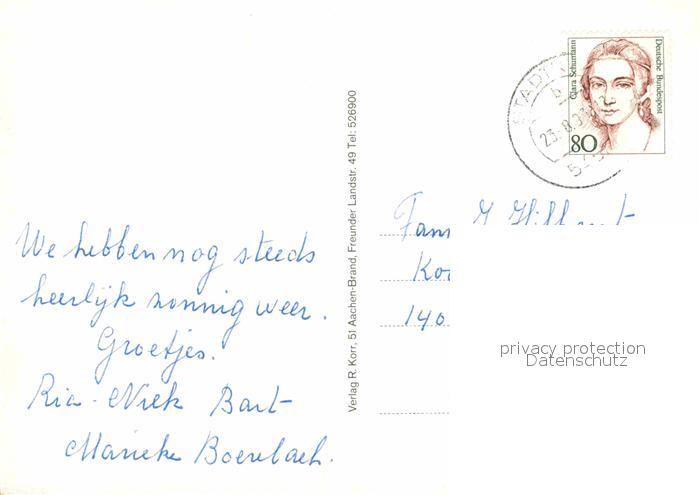 We hebben nog steeds
heerlijk zonnig weer.
Groetjes.
Ria - Niek Bart
Marieke Boerebach.
Verlag R. Korr, 51 Aachen-Brand, Freunder Landstr. 49 Tel: 526900
Clara Schumann
Deutsche Bundespost
80
23.-8.
Fam
140
privacy protection
Datenschutz